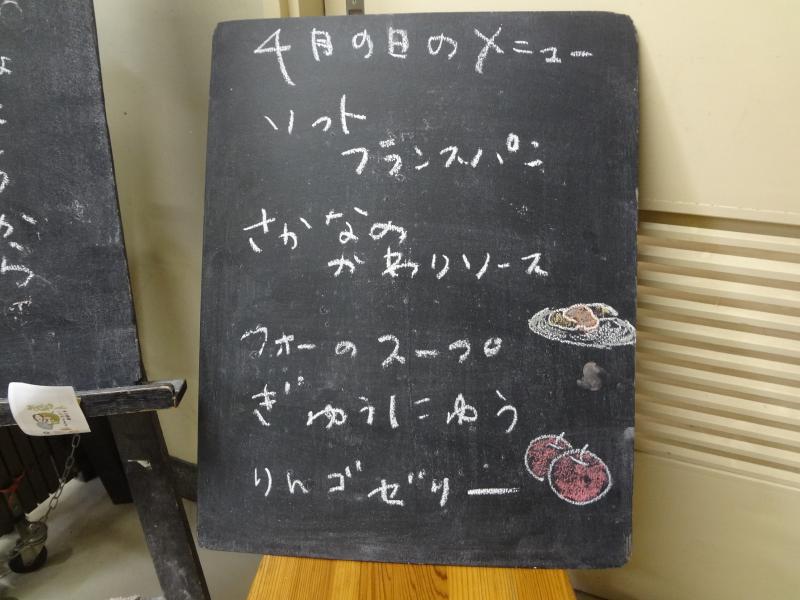 4月の日のメニュー
ソフト
フランスパン
さかなの
かわりソース
フォーのスープ
ぎゅうにゅう
りんゴゼリー